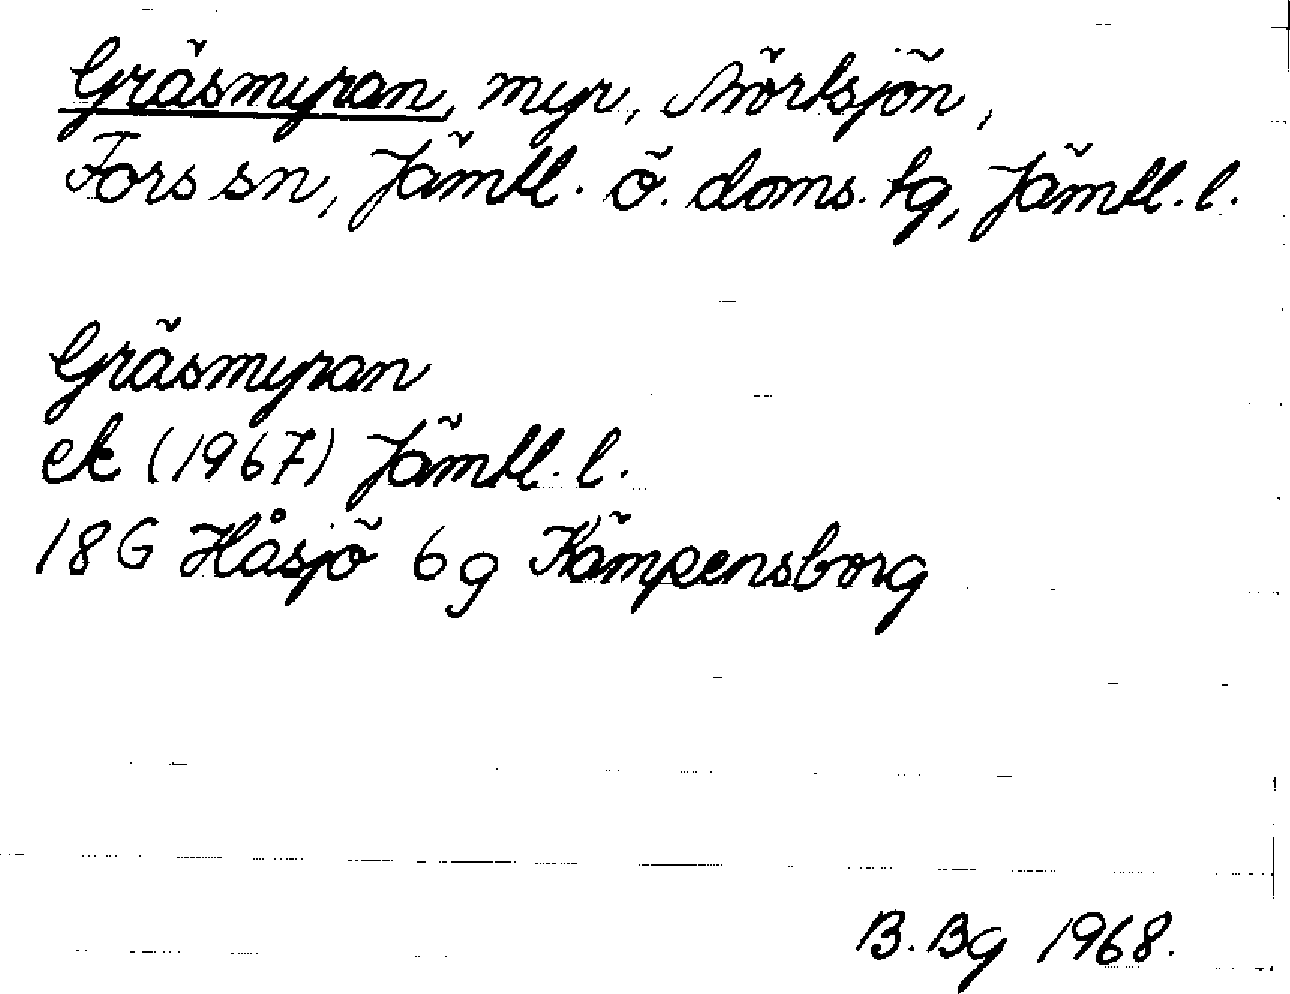 Gräsmyran, myr, Mörtsjön,
Fors sn, Jämtl. ö. doms. tg, Jämtl. l.
Gräsmyran
ek (1967) Jämtl. l.
18G Håsjö 6g Kämpensborg
B. Bg 1968.